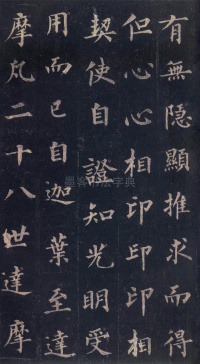 有無隱顯推求而得
但心心相印印印相
契使自證知光明受
用而已自迦葉至達
摩凡二十八世達摩
墨客书法字典